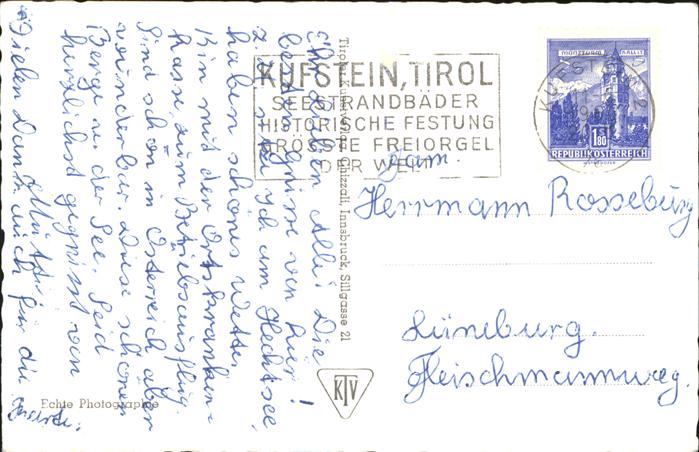 Ihr Lieben Alle! Die
besten Grüsse von hier!
Z. Z. sitze ich am Hechtsee
haben schönes Wetter.
Bin mit der Ortskranken=
kasse zum Betriebsausflug.
Sind schon in Österreich aber
wunderbar. Diese schönen
Berge u. der See. Seid
herzlichst gegrüsst von
Mutti.
Vielen Dank auch für die Karte.
Echte Photographie
Tiroler Kunstverlag Chizzali, Innsbruck, Sillgasse 21
KTV
KUFSTEIN, TIROL
SEESTRANDBÄDER
HISTORISCHE FESTUNG
GRÖSSTE FREIORGEL
DER WELT
MÜNZTURM HALL I.T.
KUFSTEIN 2
1.80
REPUBLIK ÖSTERREICH
Fam.
Herrmann Rosseburg
Lüneburg.
Fleischmannweg.